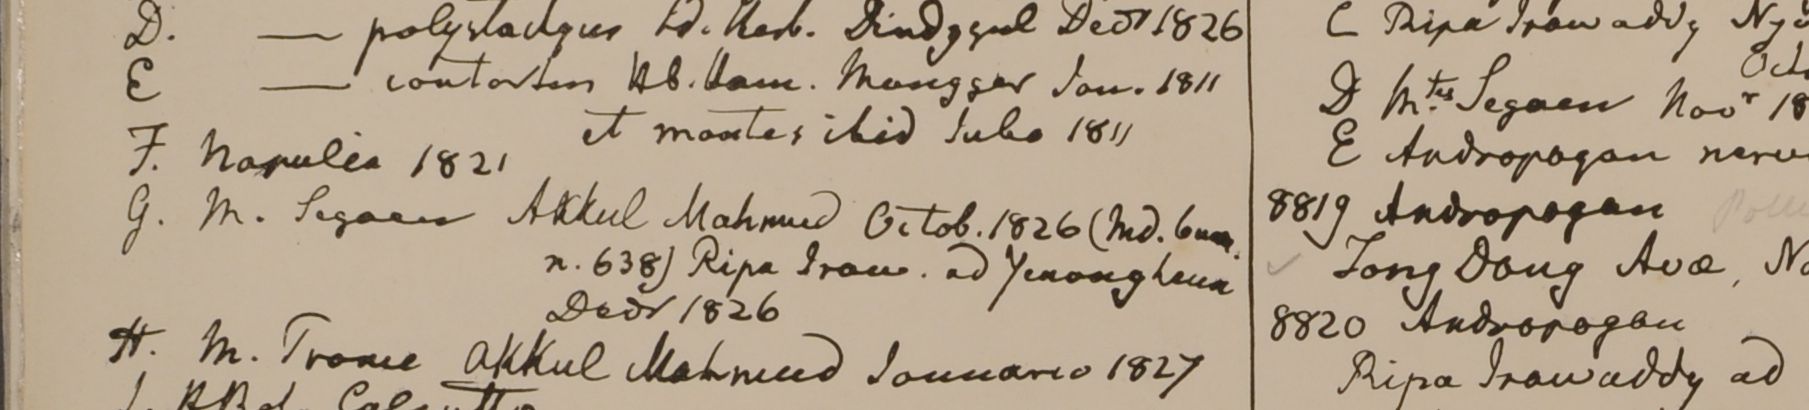 D. — polystachyus Hd. Herb. Dindygul Decr 1826
E — contortus HB. Ham. Mungger Jan. 1811
et montes ibid Julio 1811
F. Napulia 1821
G. M. Segaen Akkul Mahmud Octob. 1826 (Md. bum.
n. 638) Ripa Iraw. ad Yenanghuin
Decr 1826
H. M. Trome Akkul Mahmud Januario 1827
HBd. Calcutta
C Ripa Irawaddy
Octo
D Mtes Segaen Novr 18
E Andropogon nerv
8819 Andropogon
Tong Dong Avæ, No
8820 Andropogon
Ripa Irawaddy ad